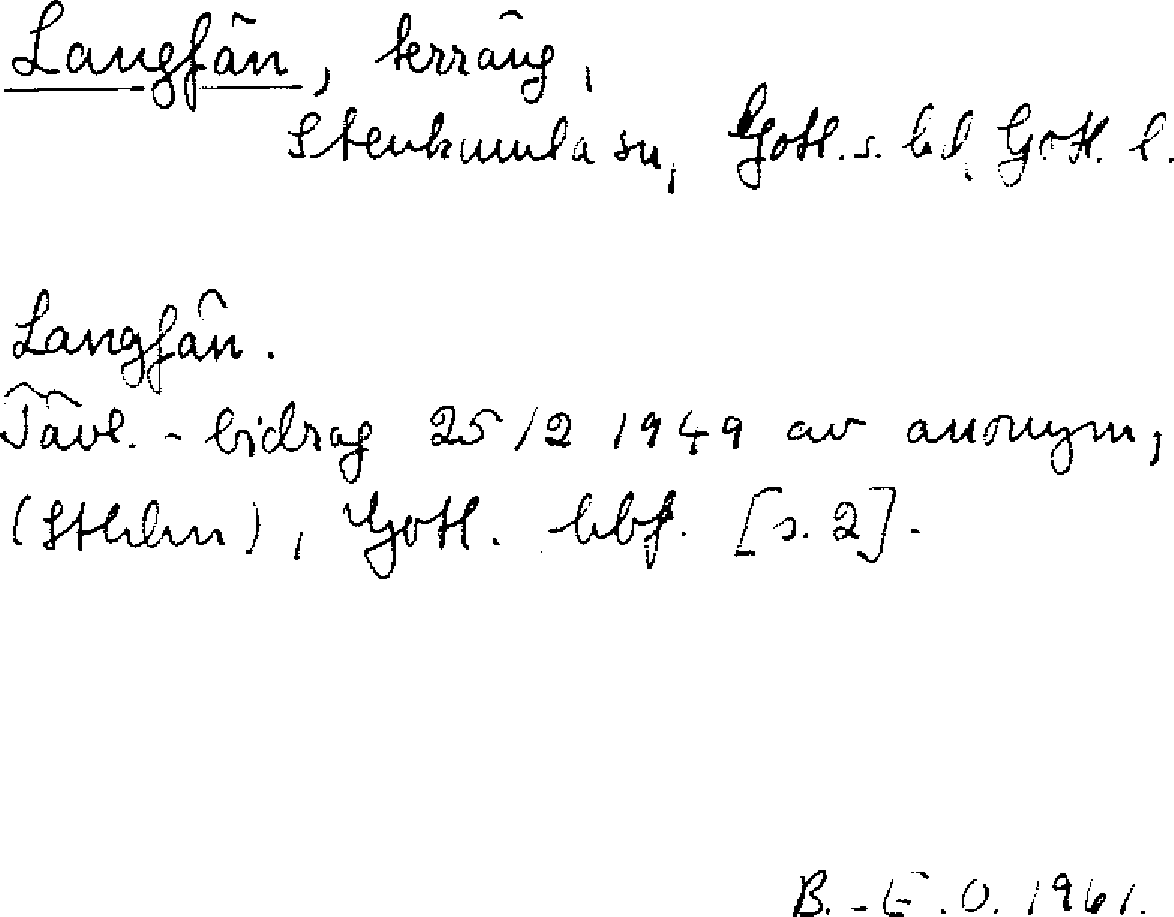 Langfän, terräng,
Stenkumla sn, Gotl. s. hd. Gotl. l.
Langfän.
Tävl.-bidrag 25/2 1949 av anonym,
(Sthlm), Gotl. hbf. [s. 2].
B.-E.O. 1961.